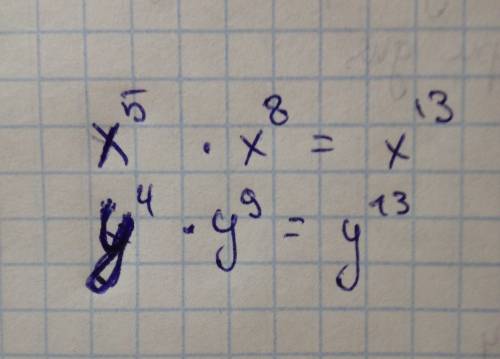 x⁵ · x⁸ = x¹³
y⁴ · y⁹ = y¹³